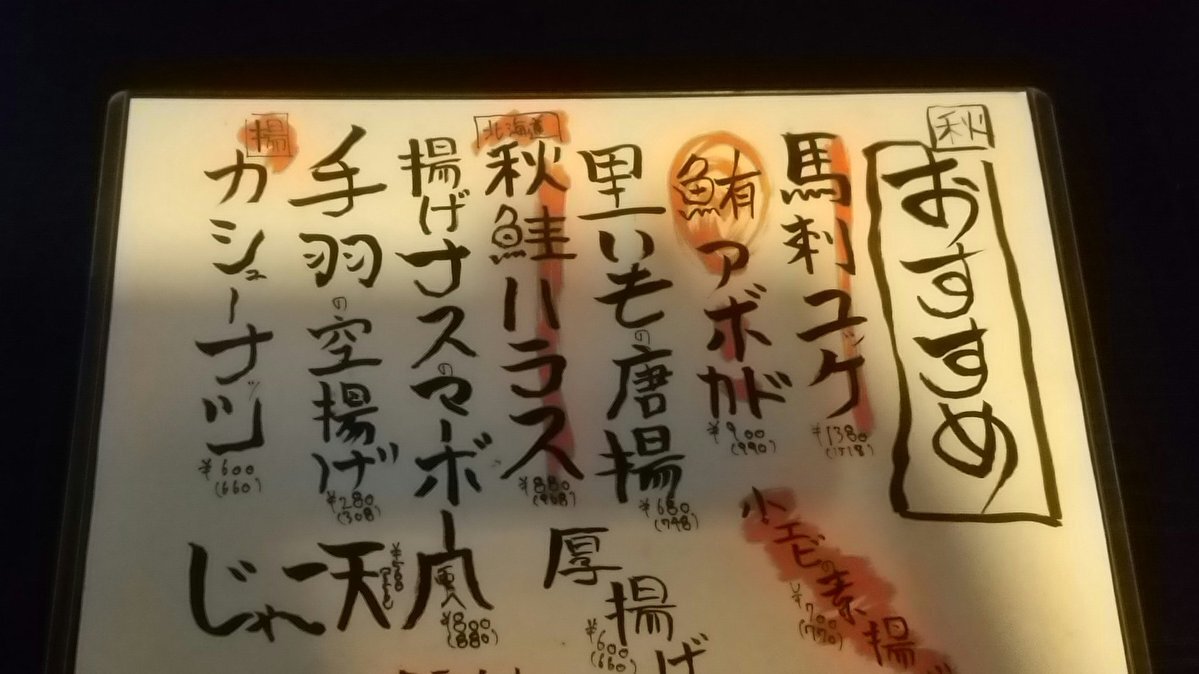 秋
おすすめ
馬刺ユッケ
¥1380
(1518)
鮪アボカド
¥900
(990)
里いもの唐揚
¥680
(748)
北海道
秋鮭ハラス
¥880
(968)
揚げナスのマーボー風
¥800
(880)
手羽の空揚げ
¥280
(308)
揚
カシューナッツ
¥600
(660)
小エビの素揚げ
¥700
(770)
厚揚げ
¥600
(660)
じゃこ天